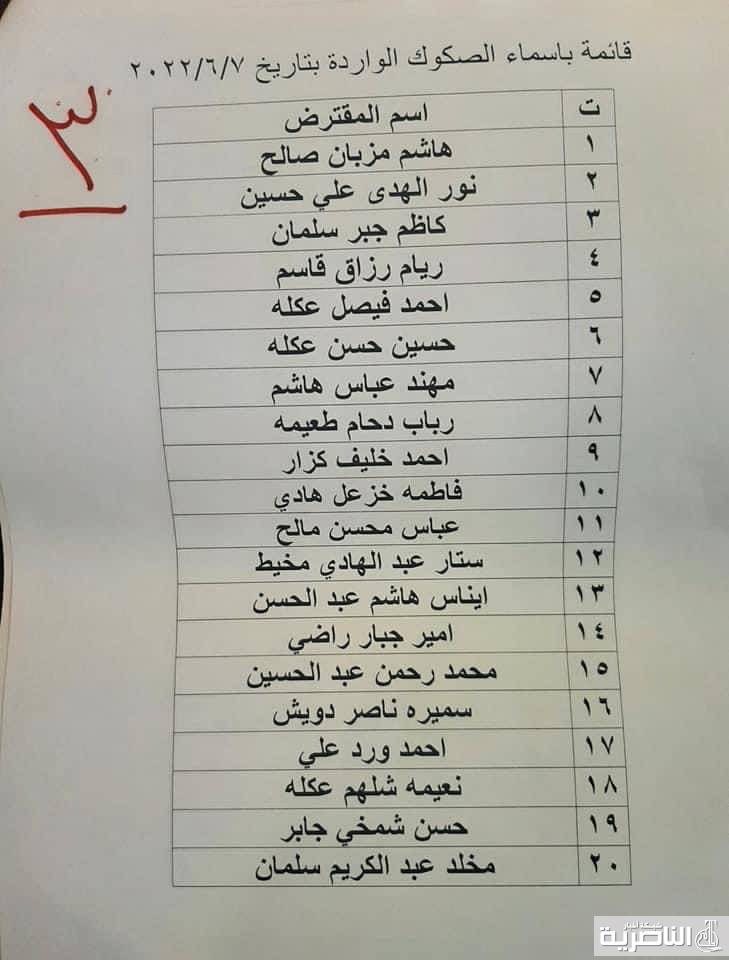 قائمة باسماء الصكوك الواردة بتاريخ ٢٠٢٢/٦/٧
ت اسم المقترض
١ هاشم مزبان صالح
٢ نور الهدى علي حسين
٣ كاظم جبر سلمان
٤ ريام رزاق قاسم
٥ احمد فيصل عكله
٦ حسين حسن عكله
٧ مهند عباس هاشم
٨ رباب دحام طعيمه
٩ احمد خليف كزار
١٠ فاطمه خزعل هادي
١١ عباس محسن مالح
١٢ ستار عبد الهادي مخيط
١٣ ايناس هاشم عبد الحسن
١٤ امير جبار راضي
١٥ محمد رحمن عبد الحسين
١٦ سميره ناصر دويش
١٧ احمد ورد علي
١٨ نعيمه شلهم عكله
١٩ حسن شمخي جابر
٢٠ مخلد عبد الكريم سلمان
شبكة اخبار
الناصرية